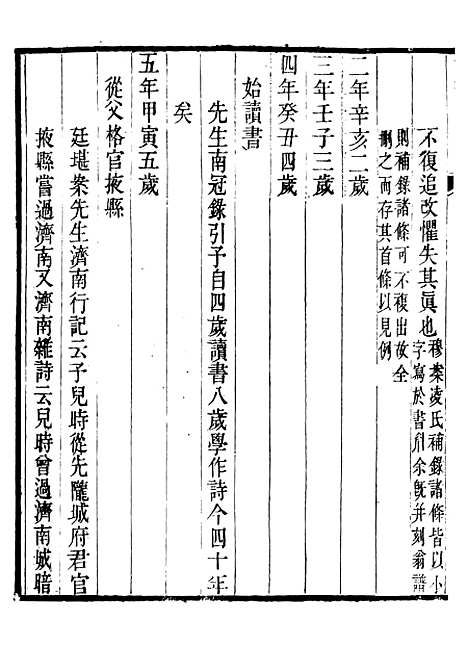 不復追改懼失其眞也穆案凌氏補錄諸條皆以小
字寫於書眉余既并刻翁譜
則補錄諸條可不複出故全
刪之而存其首條以見例
二年辛亥二歲
三年壬子三歲
四年癸丑四歲
始讀書
先生南冠錄引予自四歲讀書八歲學作詩今四十年
矣
五年甲寅五歲
從父格官掖縣
廷堪案先生濟南行記云予兒時從先隴城府君官
掖縣嘗過濟南又濟南雜詩云兒時曾過濟南城暗